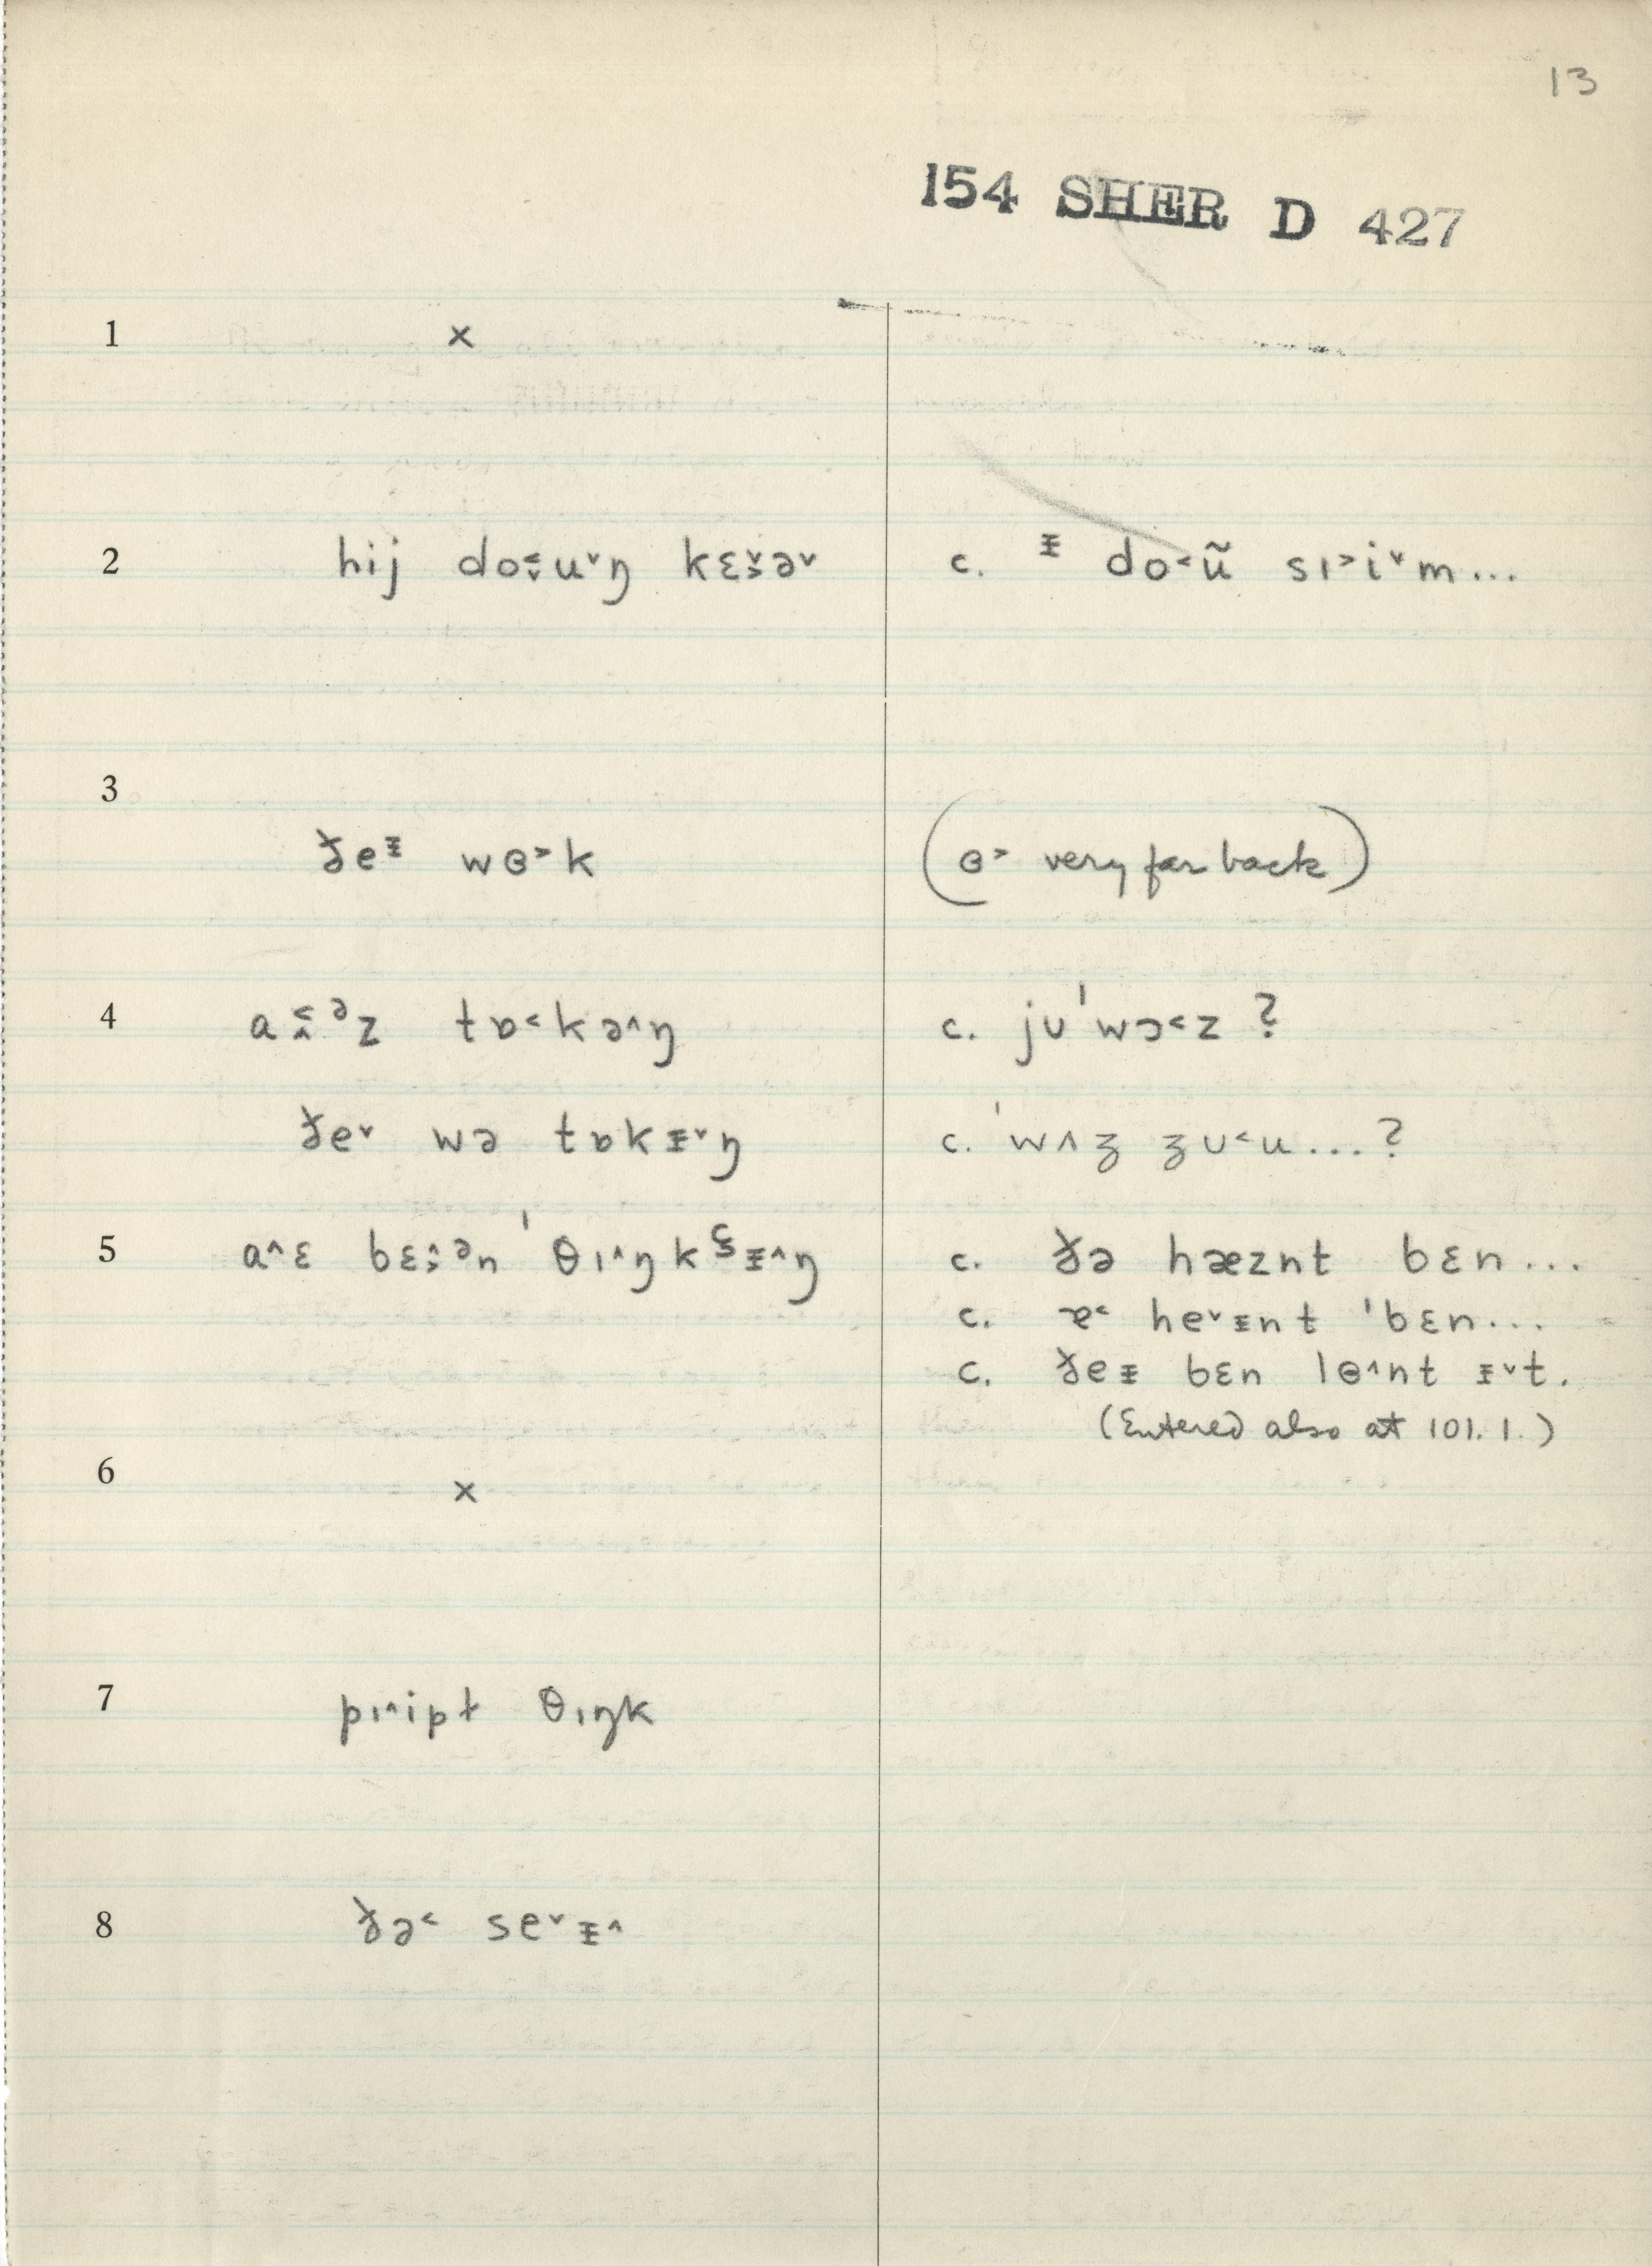 13
154 SHER D 427
1 ×
2 hij do˂̬u˅ŋ kɛ˅˃ə˅ c. ᵻ do˂ũ sɪ˃i˅m...
3
ðeᵻ wɵ˃k (ɵ˃ very far back)
4 a˂̭ᵊz tɒ˂kə˄ŋ c. jʊˈwɔ˂z ?
ðe˅ wə tɒkᵻ˅ŋ c. ˈwʌʒ ʒʊ˂u...?
5 a˄ɛ bɛ˄˃ᵊn ˈθɪ˄ŋkᵻ˄ŋ c. ðə hæznt bɛn...
c. ɐ˂ he˅ᵻnt ˈbɛn...
c. ðeᵻ bɛn lɵ˄nt ᵻ˅t.
(Entered also at 101.1.)
6 ×
7 pɪ˄ipɫ θɪŋk
8 ðə˂ se˅ᵻ˄